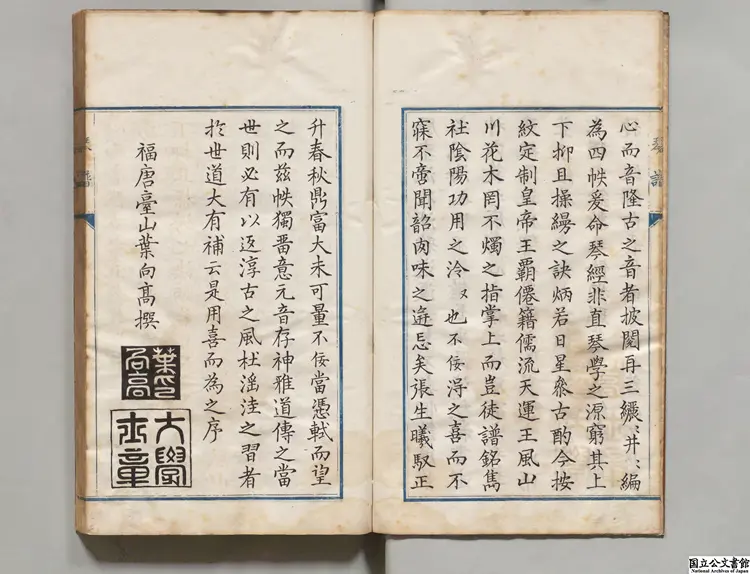 心而音隆古之音者披閱再三纚〻井〻編
為四帙爰命琴經非直琴學之源窮其上
下抑且操縵之訣炳若日星叅古酌今按
紋定制皇帝王覇僊籍儒流天運王風山
川花木罔不燭之指掌上而豈徒譜銘雋
社陰陽功用之泠〻也不佞淂之喜而不
寐不啻聞韶肉味之迯忘矣張生曦馭正
升春秋鼎富大未可量不佞當憑軾而望
之而茲帙獨畱意元音存神雅道傳之當
世則必有以返淳古之風杜滛洼之習者
於世道大有補云是用喜而為之序
福唐臺山葉向髙撰
葉向高印
大學士章
琴譜
国立公文書館
National Archives of Japan